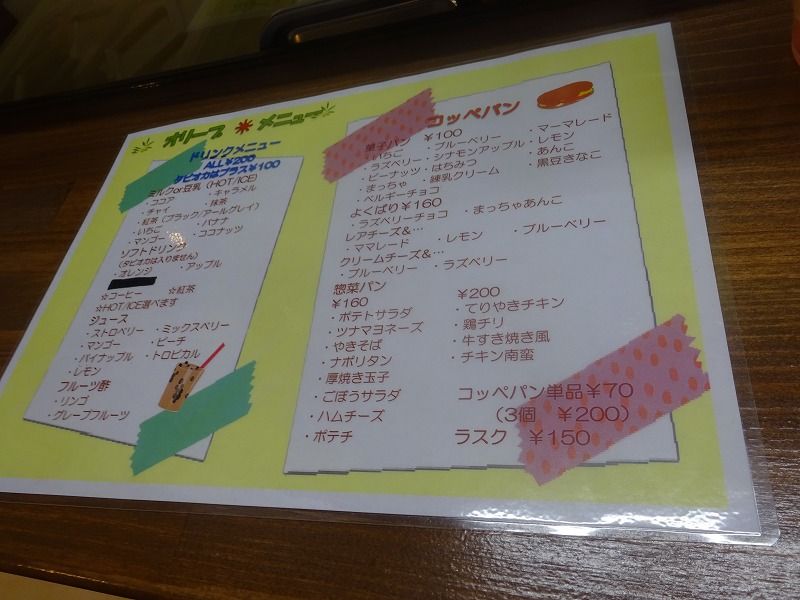 ドリンクメニュー
ALL¥200
タピオカはプラス¥100
ミルクor豆乳（HOT/ICE）
・ココア ・キャラメル
・チャイ ・抹茶
・紅茶（ブラック/アールグレイ）
・いちご ・バナナ
・マンゴー ・ココナッツ
ソフトドリンク
（タピオカは入りません）
・オレンジ ・アップル
☆コーヒー ☆紅茶
☆HOT/ICE選べます
ジュース
・ストロベリー ・ミックスベリー
・マンゴー ・ピーチ
・パイナップル ・トロピカル
・レモン
フルーツ酢
・リンゴ
・グレープフルーツ
コッペパン
菓子パン ¥100
・いちご ・ブルーベリー ・マーマレード
・ラズベリー ・シナモンアップル ・レモン
・ピーナッツ ・はちみつ ・あんこ
・まっちゃ ・練乳クリーム ・黒豆きなこ
・ベルギーチョコ
よくばり¥160
・ラズベリーチョコ ・まっちゃあんこ
レアチーズ&…
・ママレード ・レモン ・ブルーベリー
クリームチーズ&…
・ブルーベリー ・ラズベリー
惣菜パン
¥160
・ポテトサラダ
・ツナマヨネーズ
・やきそば
・ナポリタン
・厚焼き玉子
・ごぼうサラダ
・ハムチーズ
・ポテチ
¥200
・てりやきチキン
・鶏チリ
・牛すき焼き風
・チキン南蛮
コッペパン単品¥70
（3個 ¥200）
ラスク ¥150